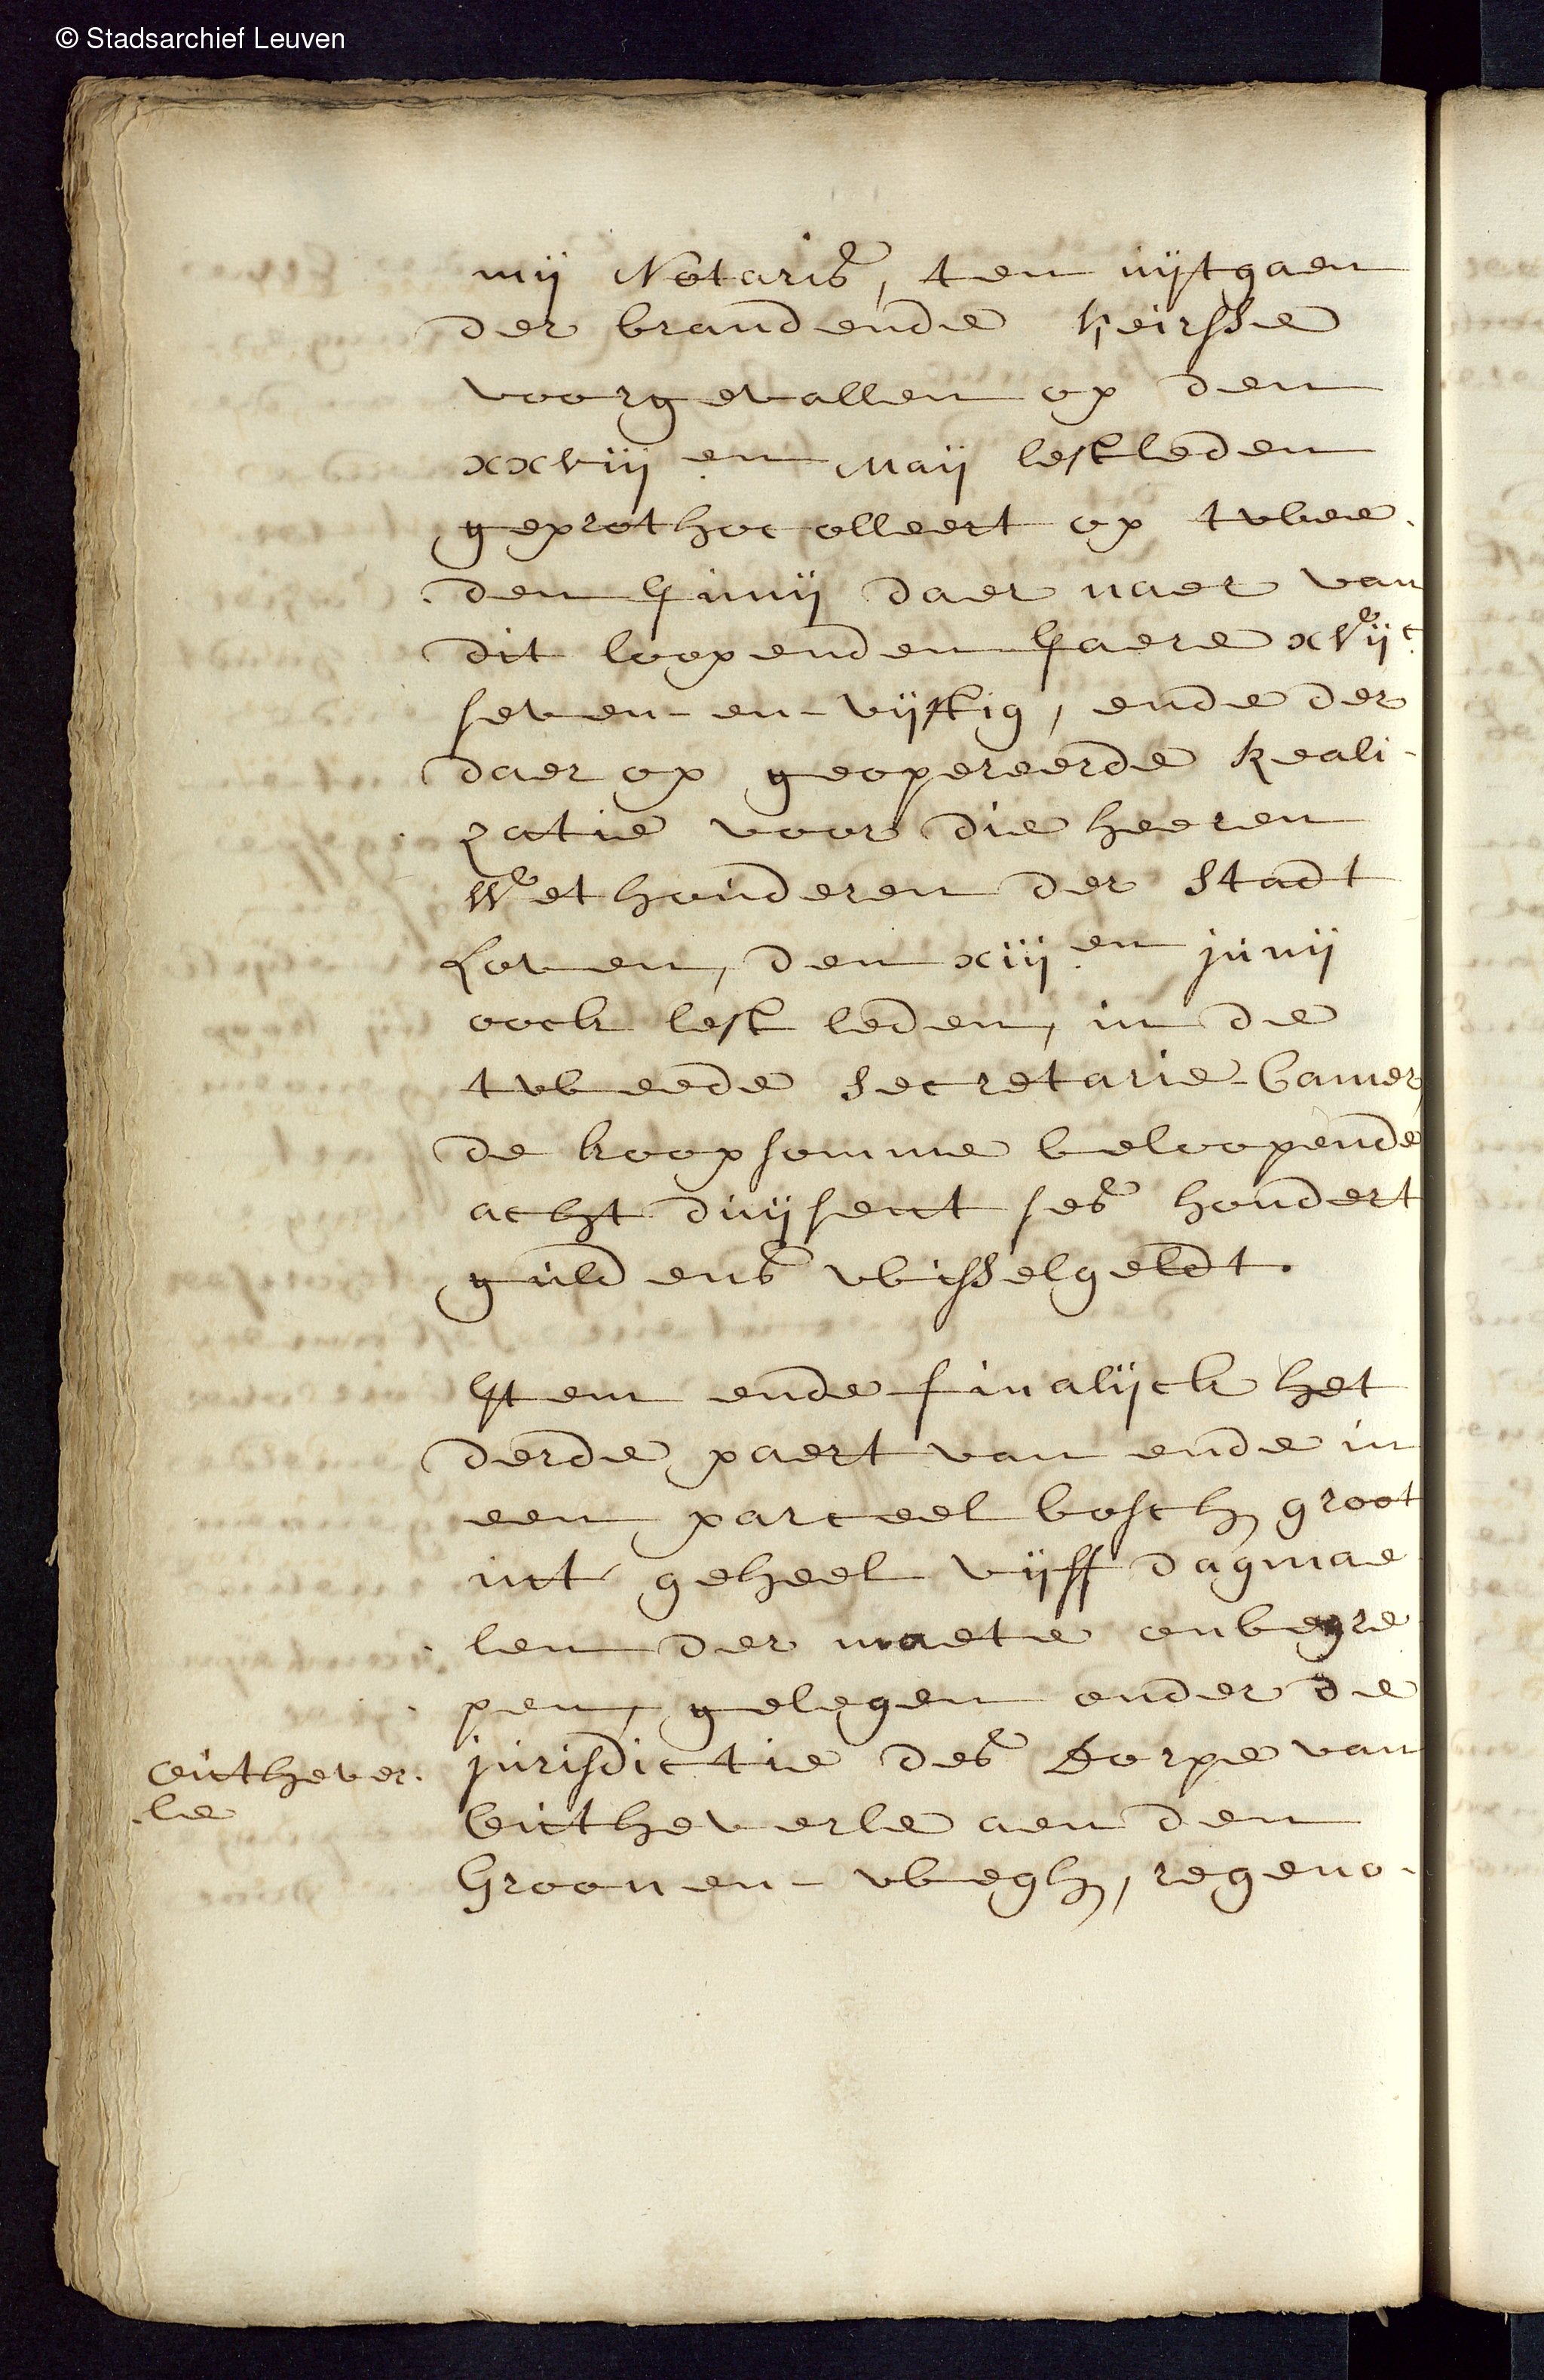 © Stadsarchief Leuven
mij Notaris, ten uijtgaen
der brandende keirsse
voorgevallen op den
xxviij en Maij lestleden
geprothocolleert op twee
den Junij daer naer van
dit loopenden Jaere xvijc
seven-en-vijftig, ende der
daer op geopereerde Reali-
zatie voor die heeren
Wethouderen der Stadt
Loven, den xiij en junij
oock lest leden, in de
tweede Secretarie-Camer,
de koopsomme beloopende
acht duijsent ses hondert
guldens wisselgeldt.
Item ende finalijck het
derde paert van ende in
een parceel bosch groot
int geheel vijff dagmae
len der maete onbegre
pen, gelegen onder de
jurisdictie des Dorpe van
Cutheverle aen den
Groonen-wegh, regeno-
Cutthever-
le